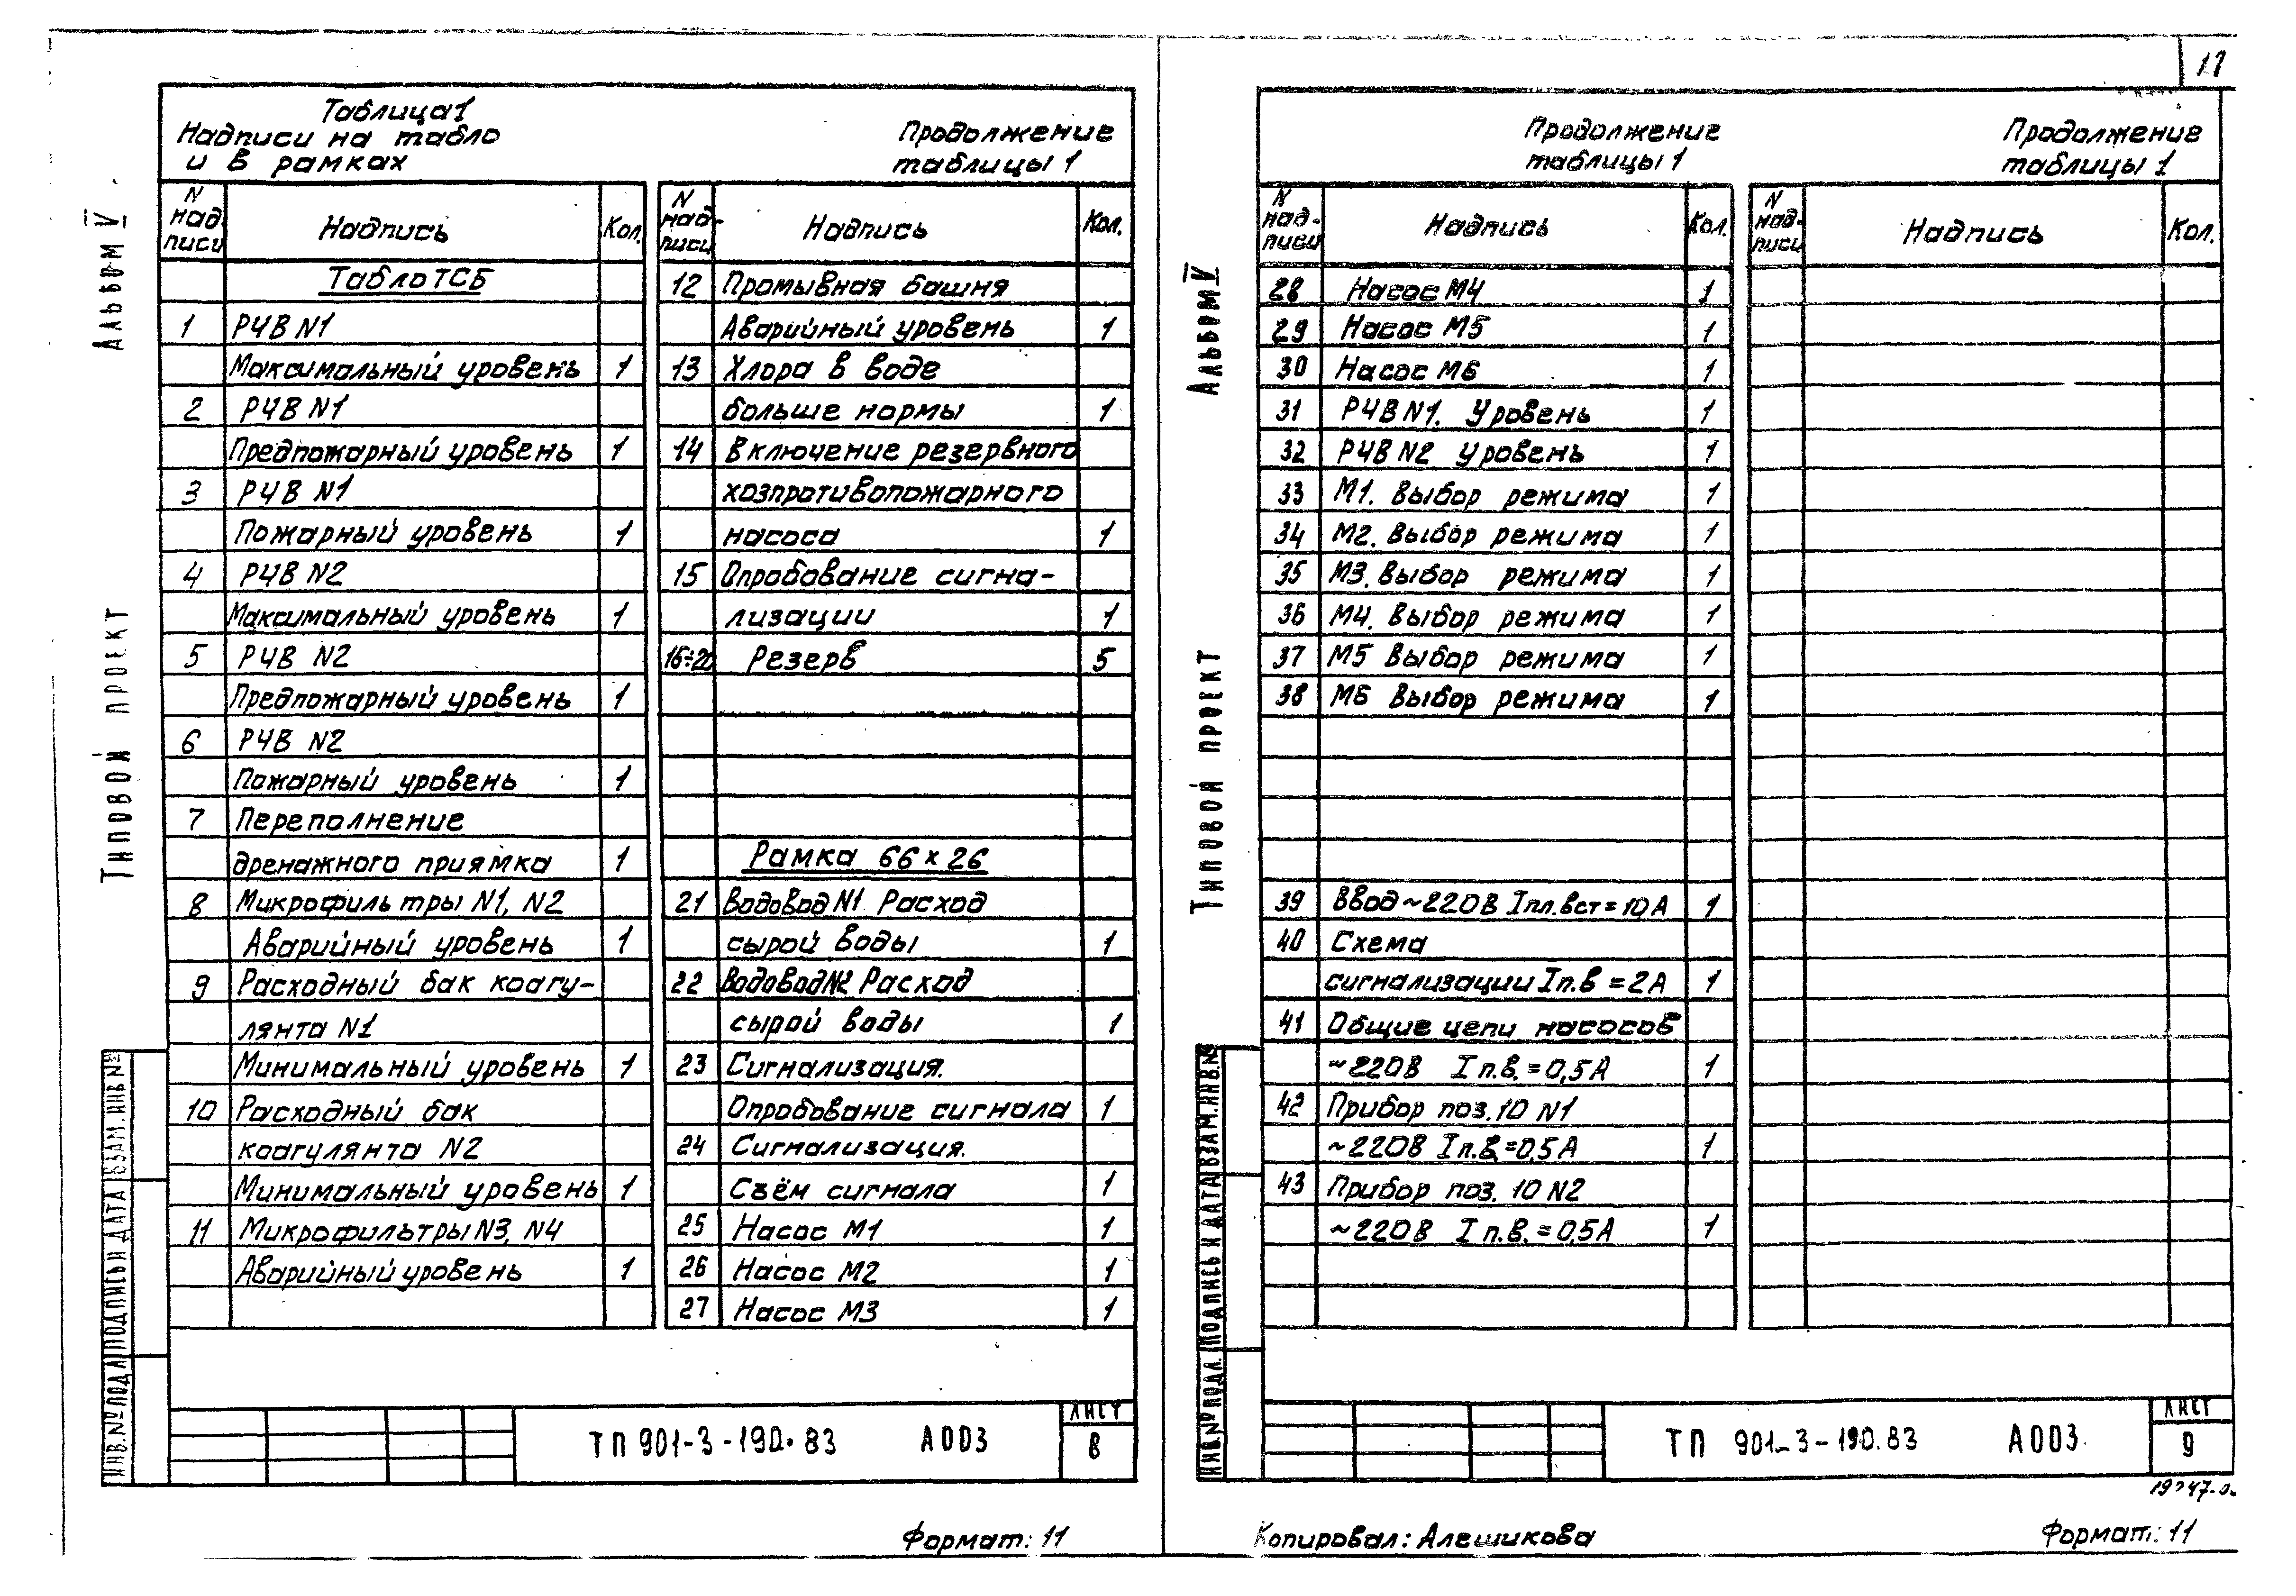 17
Таблица 1
Надписи на табло
и в рамках
Продолжение
таблицы 1
N надписи Надпись Кол.
Табло ТСБ
1 РЧВ N1
Максимальный уровень 1
2 РЧВ N1
Предпожарный уровень 1
3 РЧВ N1
Пожарный уровень 1
4 РЧВ N2
Максимальный уровень 1
5 РЧВ N2
Предпожарный уровень 1
6 РЧВ N2
Пожарный уровень 1
7 Переполнение
дренажного приямка 1
8 Микрофильтры N1, N2
Аварийный уровень 1
9 Расходный бак коагу-
лянта N1
Минимальный уровень 1
10 Расходный бак
коагулянта N2
Минимальный уровень 1
11 Микрофильтры N3, N4
Аварийный уровень 1
N над-писи Надпись Кол.
12 Промывная башня
Аварийный уровень 1
13 Хлора в воде
больше нормы 1
14 Включение резервного
хозпротивопожарного
насоса 1
15 Опробование сигна-
лизации 1
16÷20 Резерв 5
Рамка 66 x 26
21 Водовод N1 Расход
сырой воды 1
22 Водовод N2 Расход
сырой воды 1
23 Сигнализация.
Опробование сигнала 1
24 Сигнализация.
Съём сигнала 1
25 Насос М1 1
26 Насос М2 1
27 Насос М3 1
Альбом V
Типовой проект
ИНВ.№ ПОДЛ ПОДПИСЬ И ДАТА ВЗАМ.ИНВ.№
ТП 901-3-190.83 А003
ЛИСТ
8
Формат: 11
Продолжение
таблицы 1
Продолжение
таблицы 1
N над-писи Надпись Кол.
28 Насос М4 1
29 Насос М5 1
30 Насос М6 1
31 РЧВ N1. Уровень 1
32 РЧВ N2 Уровень 1
33 М1. Выбор режима 1
34 М2. Выбор режима 1
35 М3. Выбор режима 1
36 М4. Выбор режима 1
37 М5 Выбор режима 1
38 М6 Выбор режима 1
39 Ввод ~220В Iпл.вст = 10А 1
40 Схема
сигнализации Iп.в = 2А 1
41 Общие цепи насосов
~220В Iп.в. = 0,5А 1
42 Прибор поз. 10 N1
~220В Iп.в. = 0,5А 1
43 Прибор поз. 10 N2
~220В Iп.в. = 0,5А 1
N над-писи Надпись Кол.
Альбом V
Типовой проект
ИНВ.№ ПОДЛ. ПОДПИСЬ И ДАТА ВЗАМ.ИНВ.№
ТП 901-3-190.83 А003
ЛИСТ
9
Копировал: Алешикова
Формат: 11